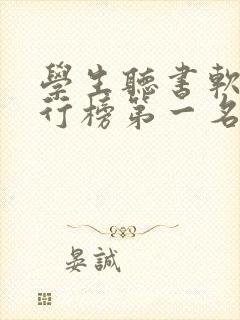 學生聽書軟
行榜第一名
晏誠